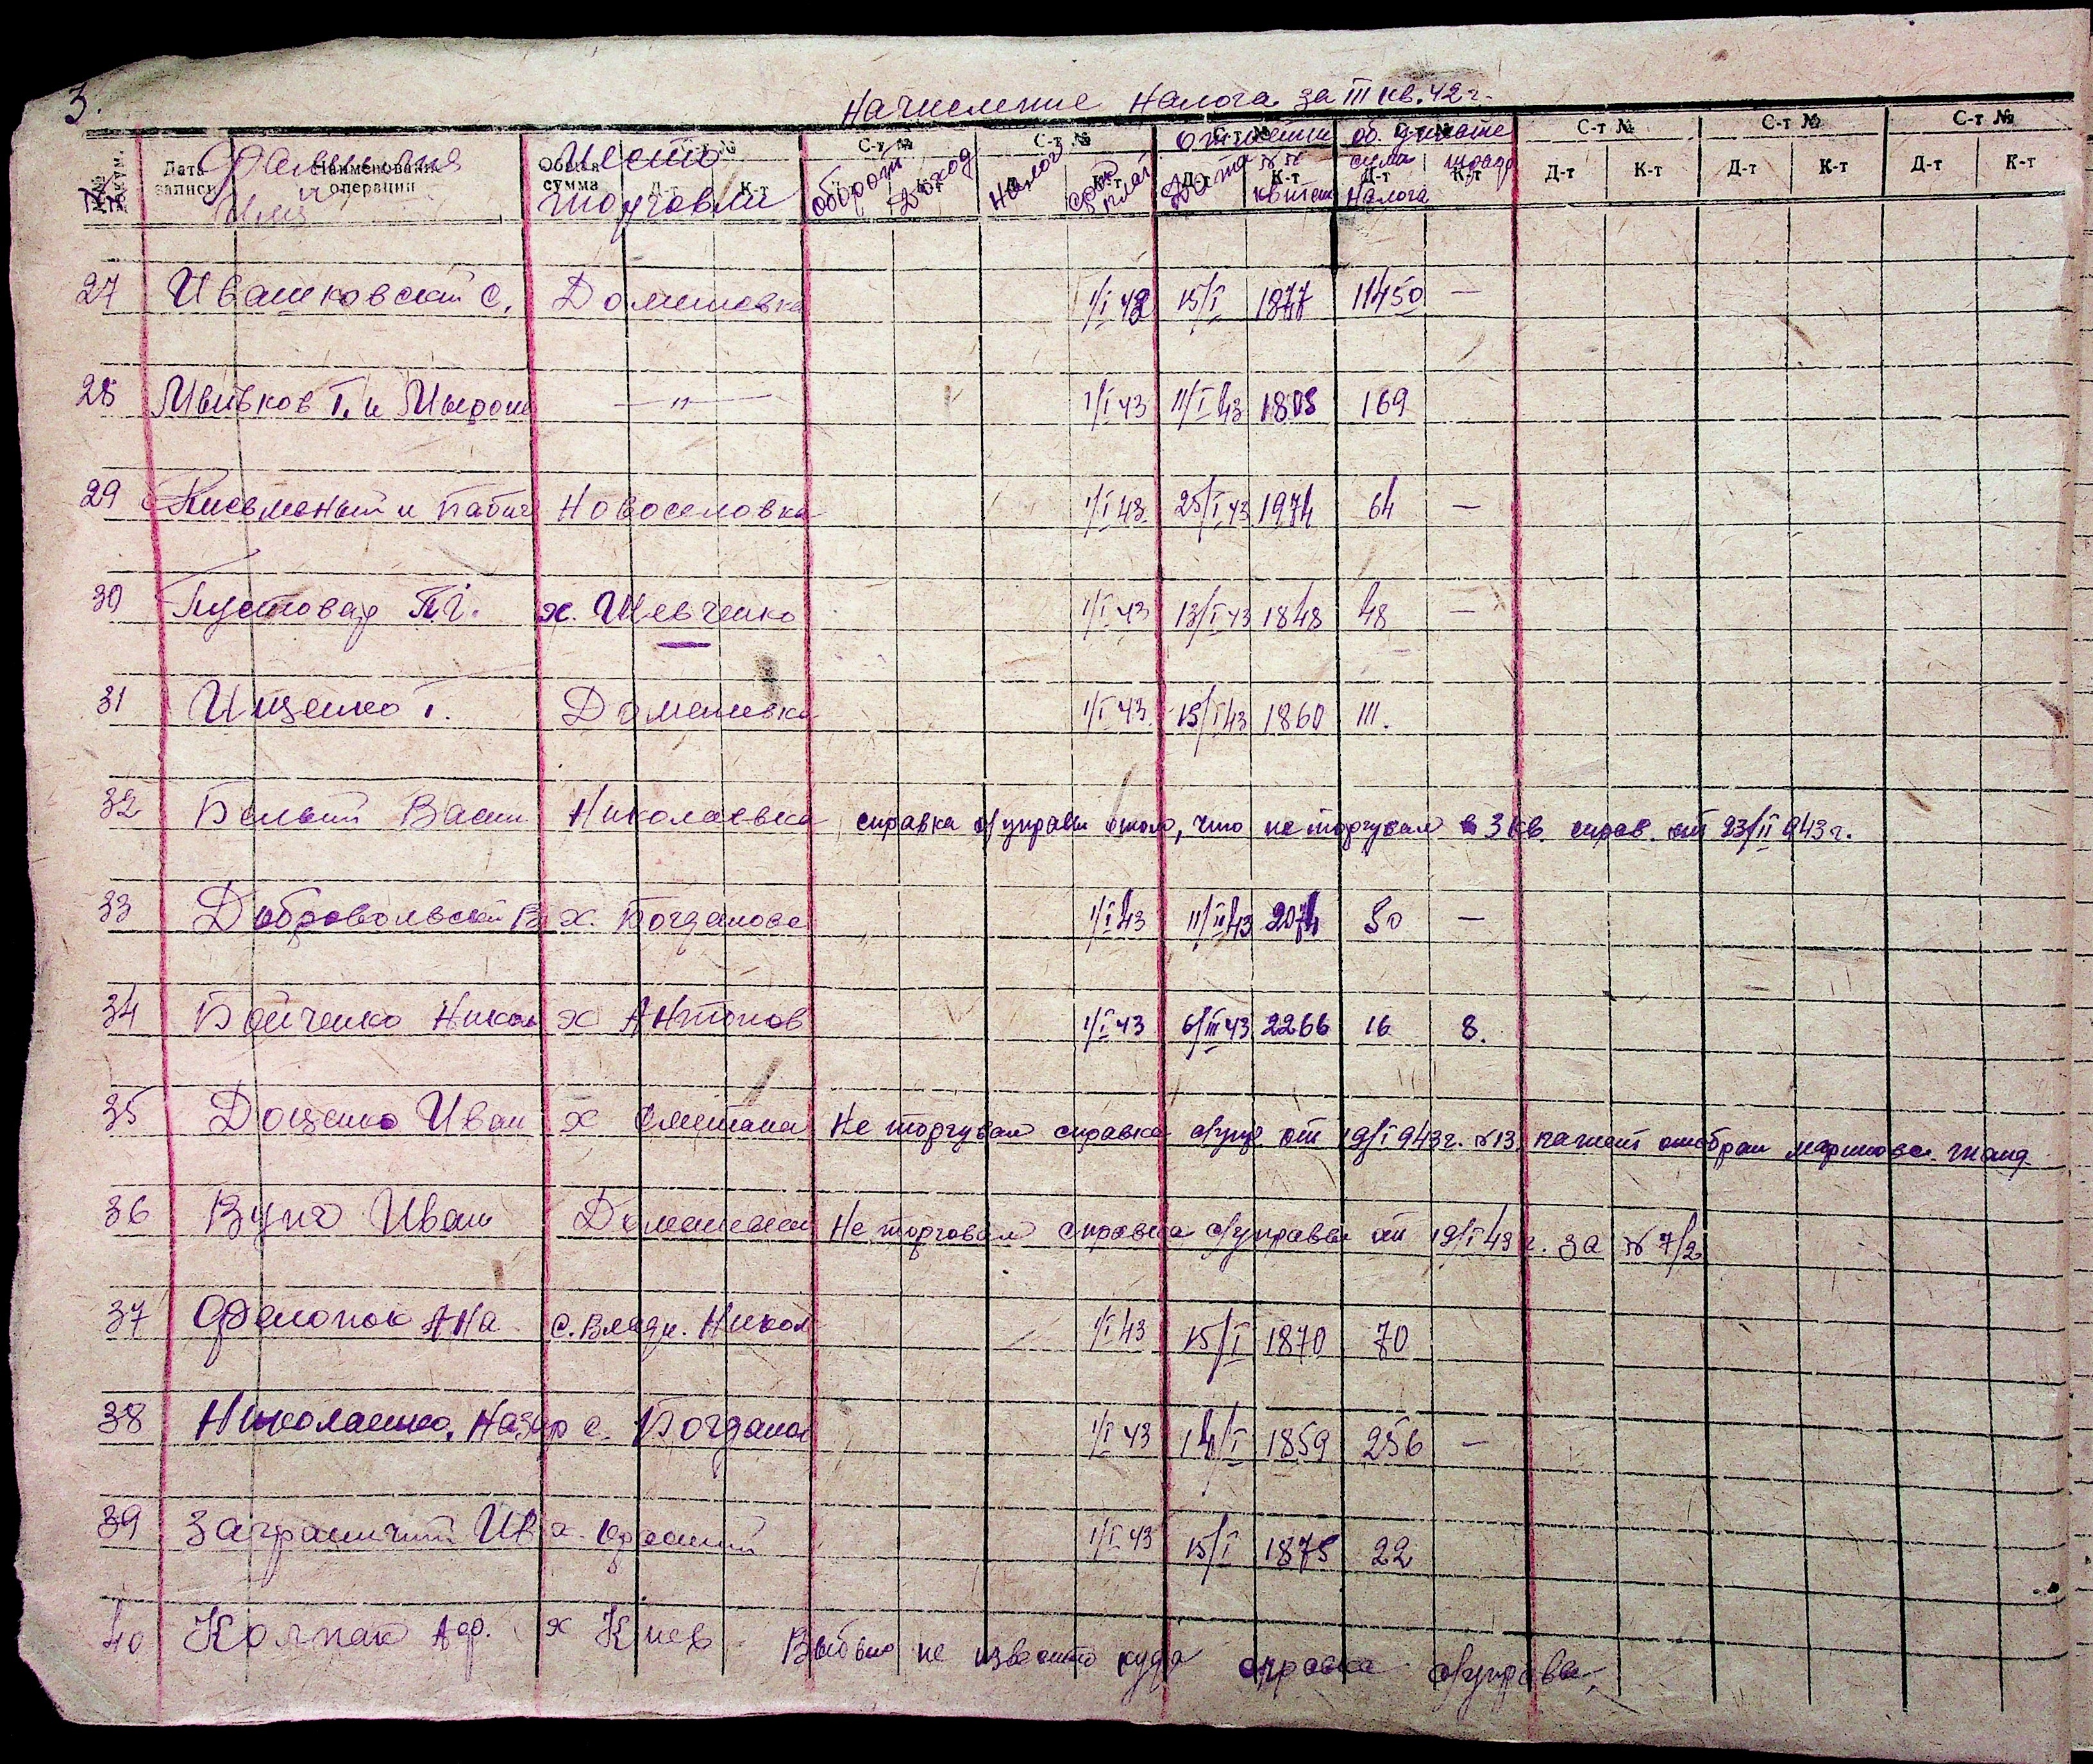 3.
Начисление Налога за III кв. 42 г.
№№ докум. Дата записи Наименование операции Общая сумма С-т № Д-т К-т С-т № К-т С-т № К-т С-т № Д-т К-т С-т № Д-т К-т С-т № Д-т К-т С-т № Д-т К-т С-т № Д-т К-т
Фамилия и Имя Место торговли оборот Доход Налог срок плат отметки об. уплате Дата №№ квитан сума Налога штраф
27 Ивашковский С. Домашовка 1/I 43 15/I 1877 11450 —
28 Мывков Г. и Мирош —"— 1/I 43 11/I 43 1808 169
29 Письменый и Бабич Новоселовка 1/I 43 25/I 43 1974 64 —
30 Пустовар П. х. Шевченко 1/I 43 13/I 43 1848 48 —
31 Ищенко Г. Домашовка 1/I 43 15/I 43 1860 111.
32 Белый Васил Николаевка справка с/управы отом, что не торгувал в 3 кв. справ. от 23/II 943 г.
33 Добровольский В х. Богданова 1/I 43 11/II 43 2074 50 —
34 Бойченко Никол х Антонов 1/I 43 6/III 43 2266 16 8.
35 Доценко Иван х Сметана Не торгувал справка с/упр от 19/I 943 г. №13, патент отобран
36 Вунч Иван Домашовка Не торговал справка с/управы от 19/I 43 г. за № 7/2
37 Фелонюк Ана с. Влади. Никол 1/I 43 15/I 1870 70
38 Николаенко Назар с. Богданов 1/I 43 14/I 1859 256 —
39 Заграничный Ив 1/I 43 15/I 1875 22
40 Колпак Аф. х Киев Выбыл не известно куда справка с/управы.